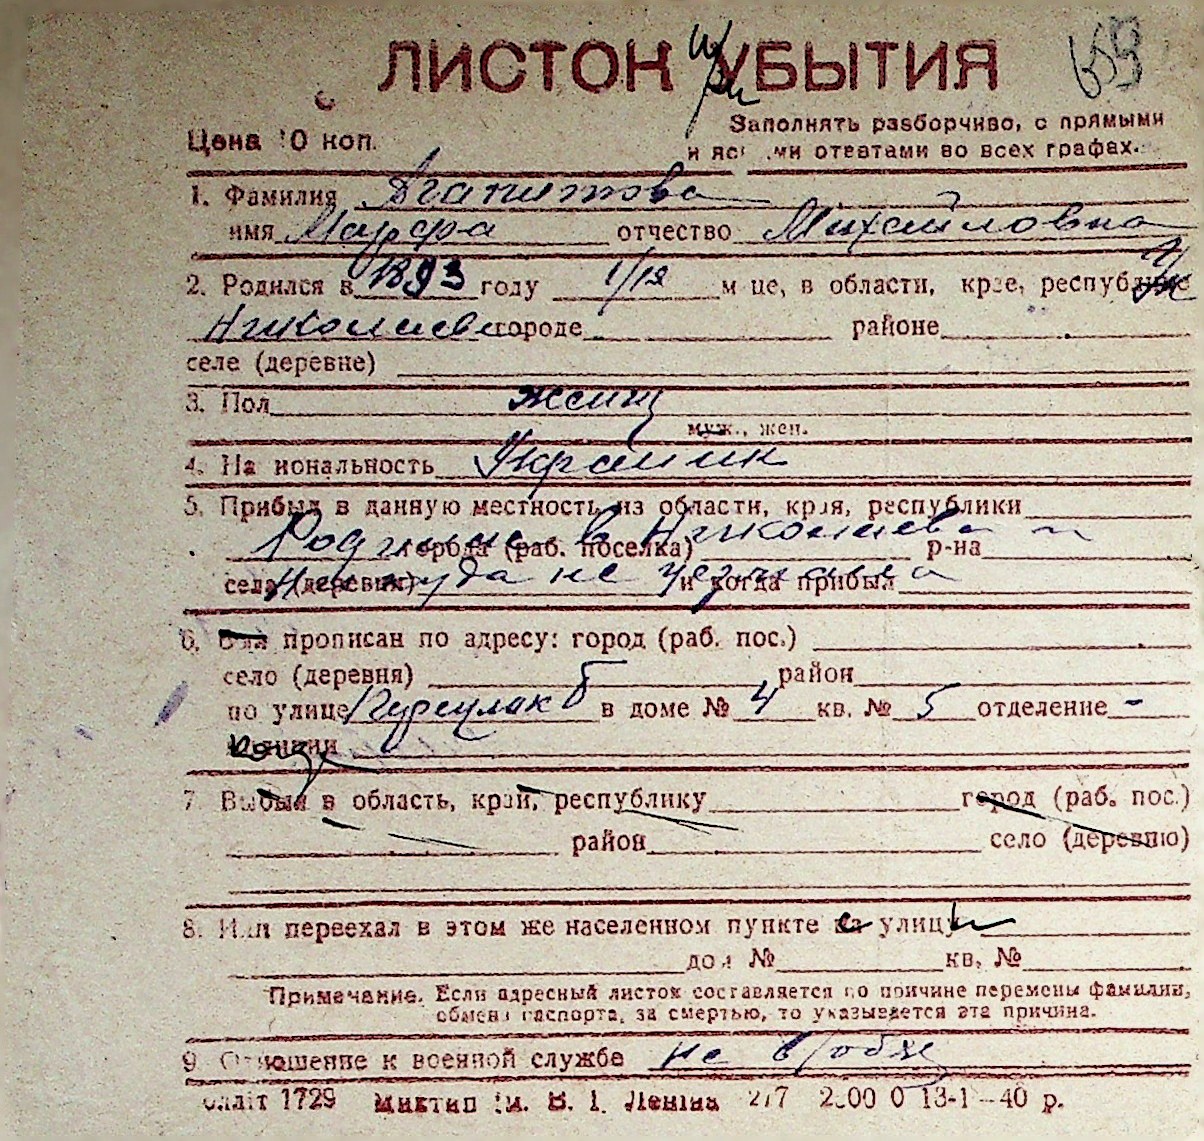 ЛИСТОК УБЫТИЯ
659
Цена 10 коп.
Заполнять разборчиво, с прямыми
и яс ми ответами во всех графах.
1. Фамилия Агапитова
имя Марфа отчество Михайловна
2. Родился в 1893 году 1/12 м це, в области, крае, республике
Николаеве городе районе
селе (деревне)
3. Пол женщ
муж., жен.
4. На иональность Украинк
5. Прибыл в данную местность из области, края, республики
Родилась в Николаеве
города (раб. поселка) р-на
села (деревни) не и когда прибыл
6. прописан по адресу: город (раб. пос.)
село (деревня) район
по улице в доме № 4 кв. № 5 отделение -
милиции
7. Выбыл в область, край, республику город (раб. пос.)
район село (деревню)
8. Или переехал в этом же населенном пункте на улицу
дом № кв. №
Примечание. Если адресный листок составляется по причине перемены фамилии,
обмена паспорта, за смертью, то указывается эта причина.
9 Отношение к военной службе не в/обяз
блліт 1729 Миктип Ім. В. І. Леніна 2 7 2 00 0 13-1-40 р.